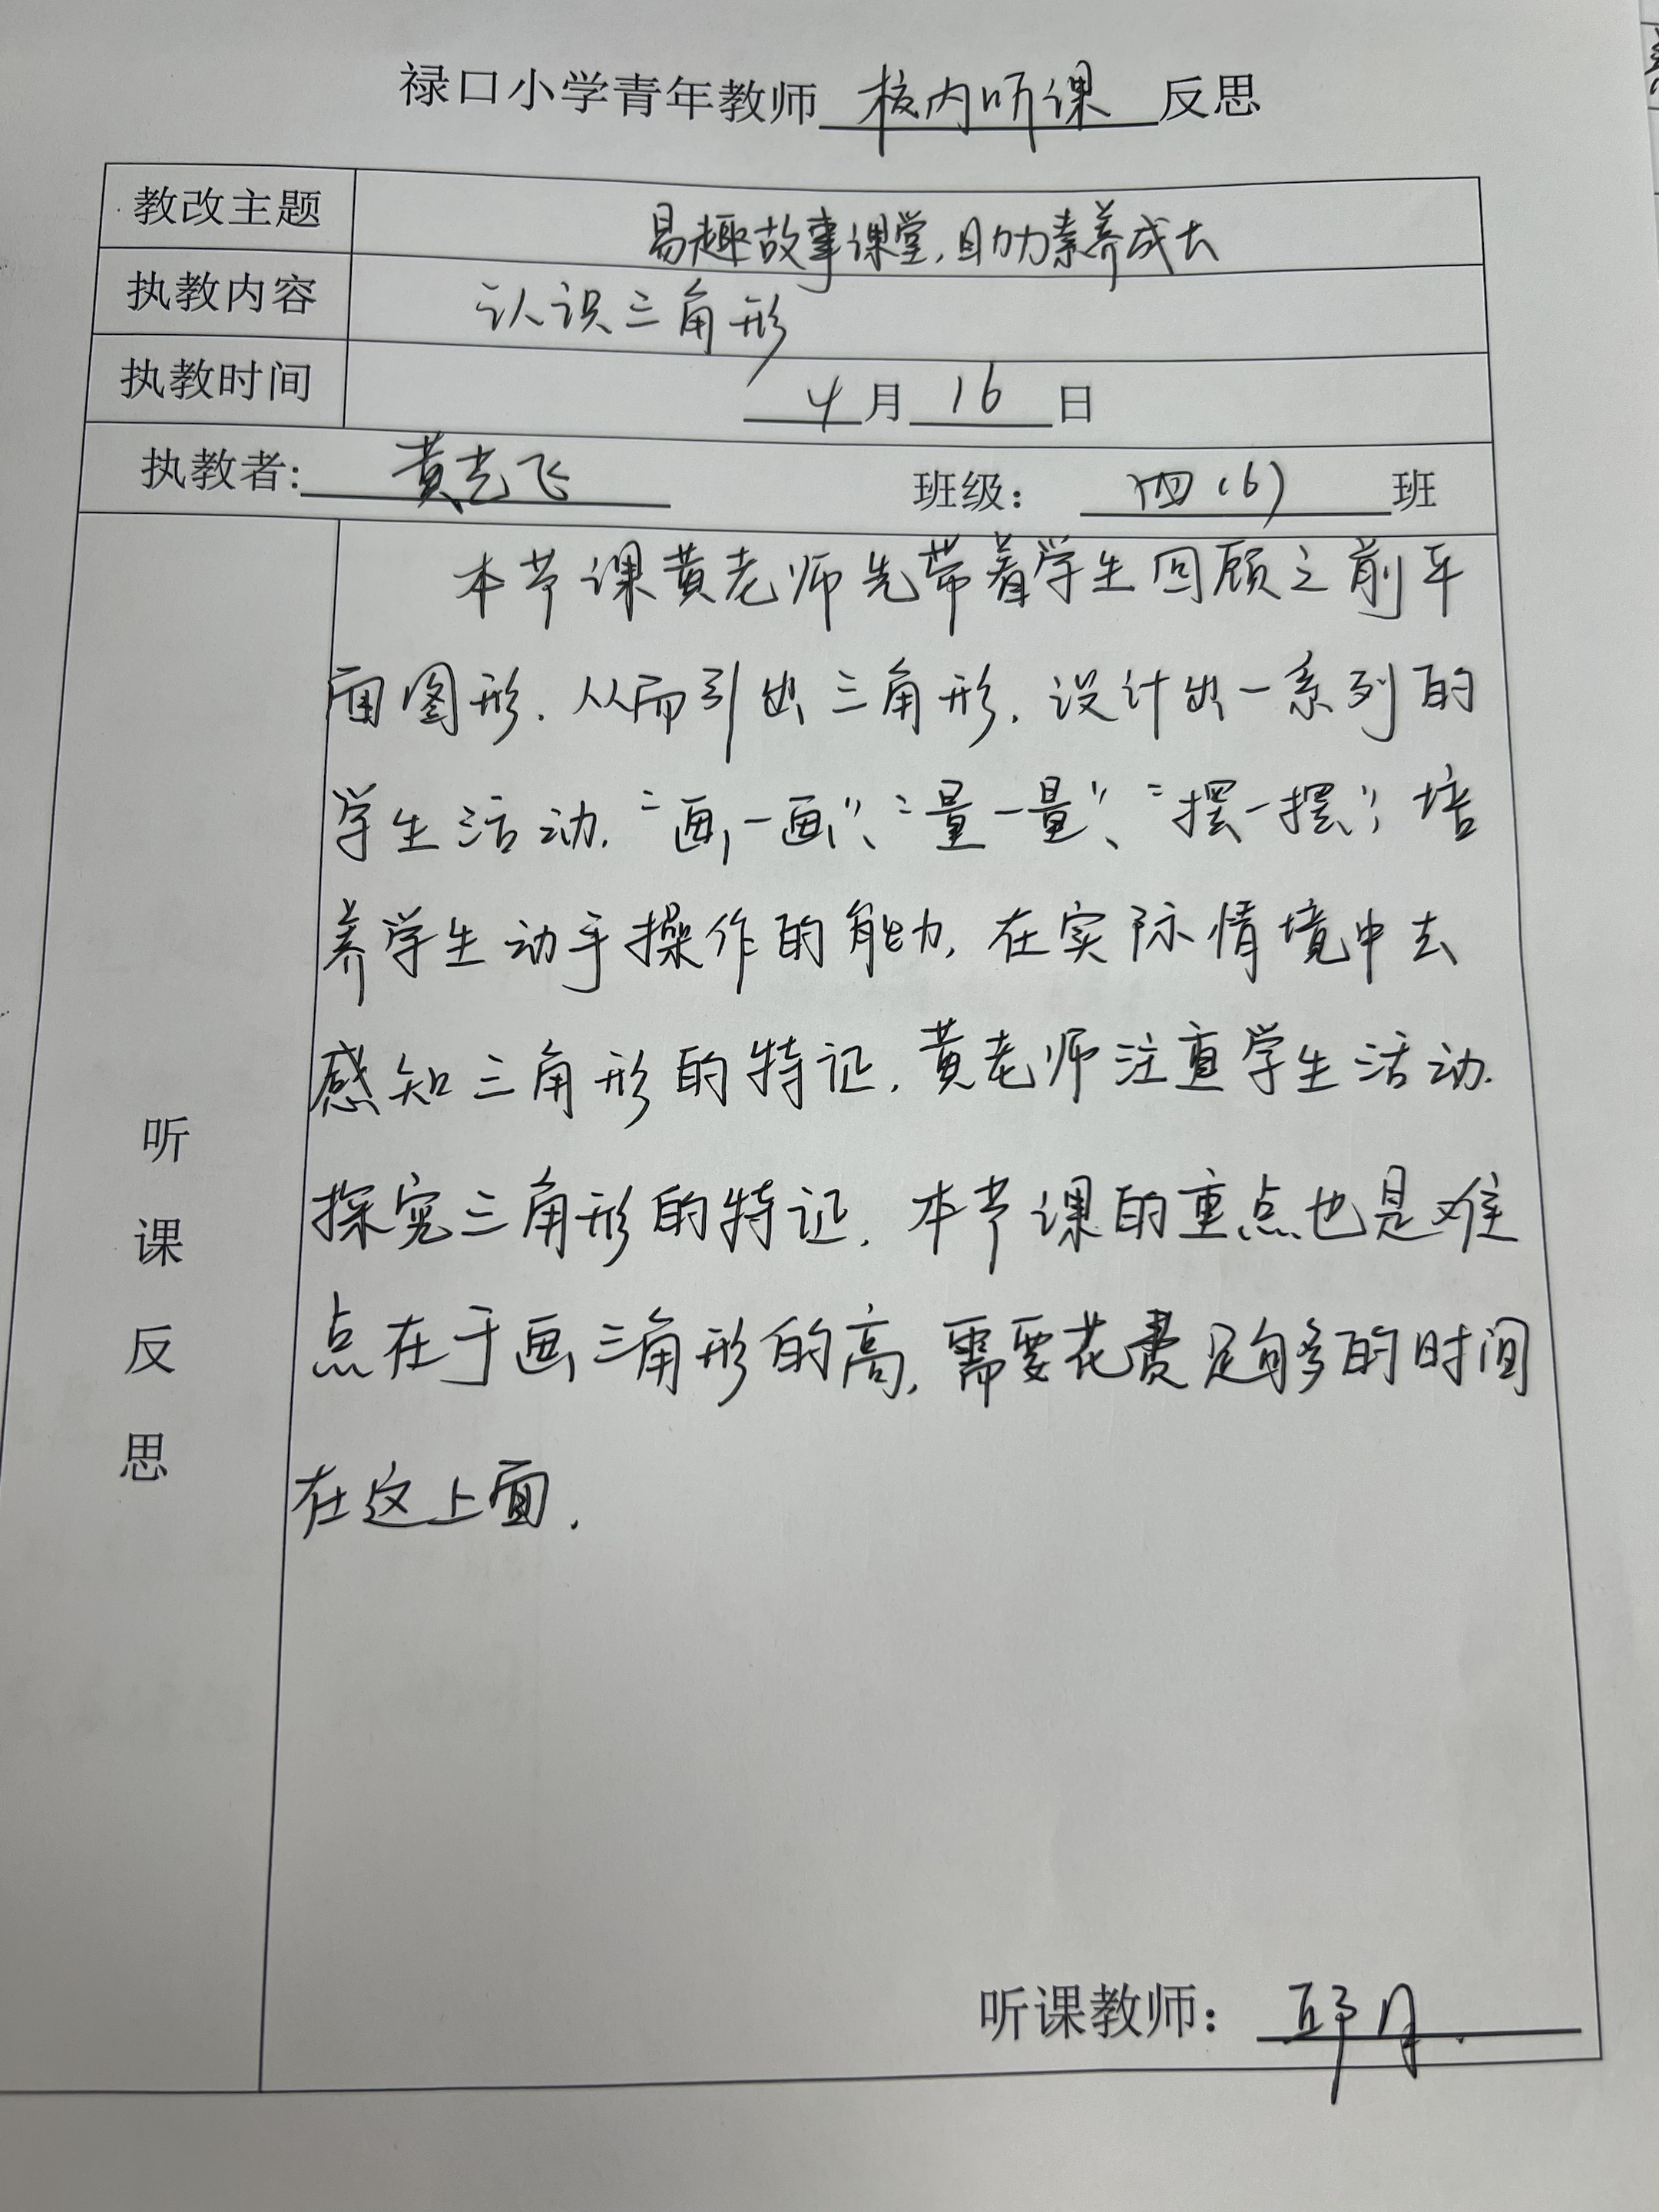 禄口小学青年教师 校内听课 反思
教改主题 易趣故事课堂,助力素养成长
执教内容 认识三角形
执教时间 4月16日
执教者: 黄志飞 班级: 四(6)班
听课反思
本节课黄老师先带着学生回顾之前平
面图形.从而引出三角形.设计出一系列的
学生活动.“画一画”、“量一量”、“摆一摆”,培
养学生动手操作的能力,在实际情境中去
感知三角形的特征.黄老师注重学生活动.
探究三角形的特征.本节课的重点也是难
点在于画三角形的高,需要花费足够多的时间
在这上面.
听课教师: 邱月.